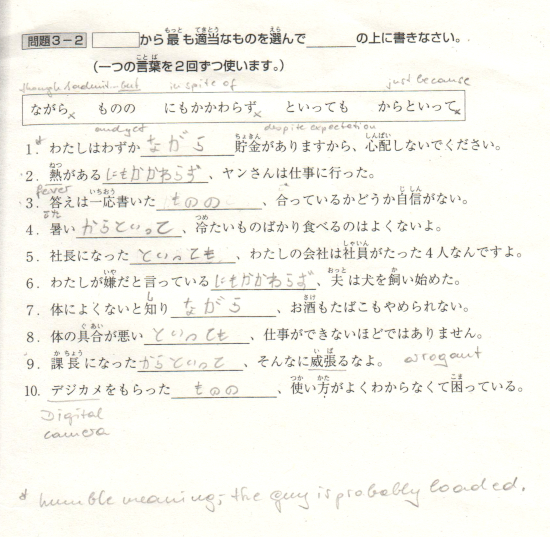 問題3-2 から最も適当なものを選んで の上に書きなさい。
(一つの言葉を2回ずつ使います。)
though/admit...but in spite of just because
ながら× ものの にもかかわらず× といっても からといって×
and yet despite expectation
1.*わたしはわずか ながら 貯金がありますから、心配しないでください。
2.熱がある にもかかわらず 、ヤンさんは仕事に行った。
fever
3.答えは一応書いた ものの 、合っているかどうか自信がない。
4.暑い からといって 、冷たいものばかり食べるのはよくないよ。
5.社長になった といっても 、わたしの会社は社員がたった4人なんですよ。
6.わたしが嫌だと言っている にもかかわらず 、夫は犬を飼い始めた。
7.体によくないと知り ながら 、お酒もたばこもやめられない。
8.体の具合が悪い といっても 、仕事ができないほどではありません。
9.課長になった からといって 、そんなに威張るなよ。 arrogant
10.デジカメをもらった ものの 、使い方がよくわからなくて困っている。
Digital
camera
* humble meaning; the guy is probably loaded.